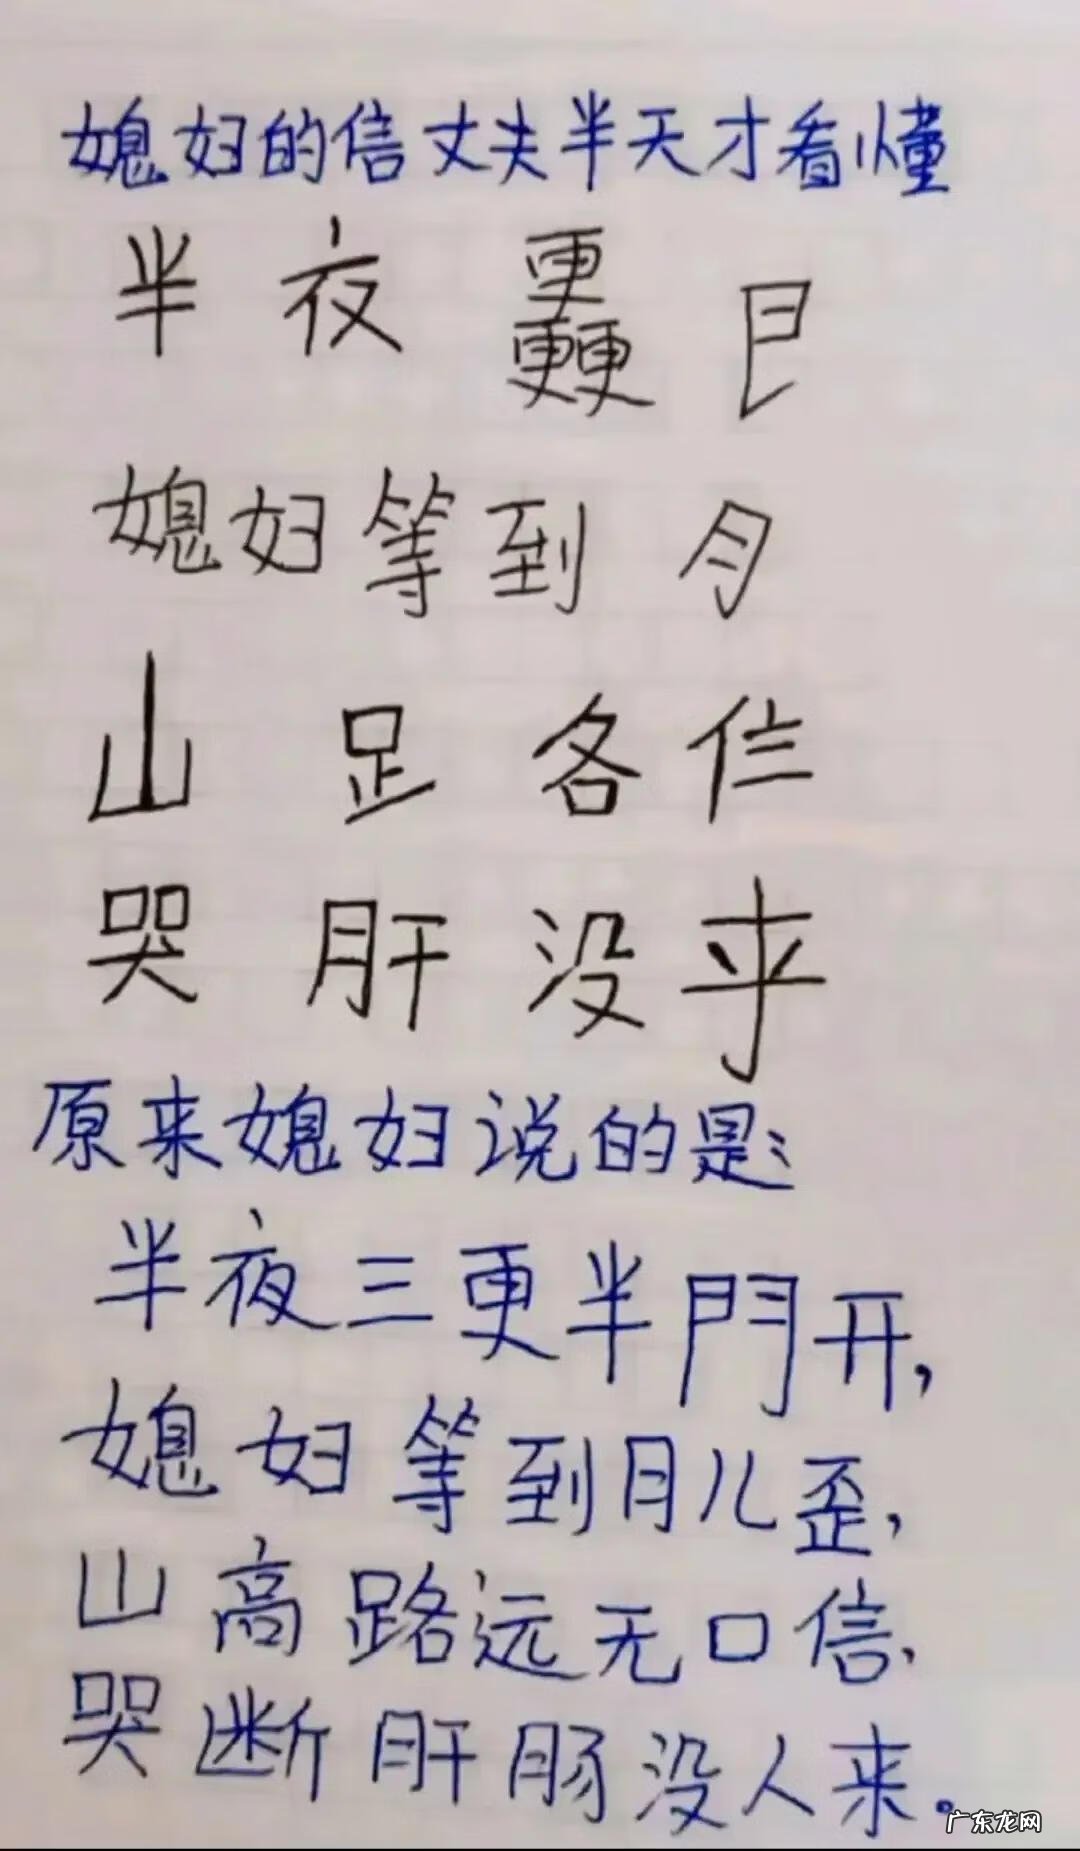 媳妇的信丈夫半天才看懂
半夜
媳妇等到月
山足各
哭肝没
原来媳妇说的是:
半夜三更半門开,
媳妇等到月儿歪,
山高路远无口信.
哭断肝肠没人来。
广东龙网